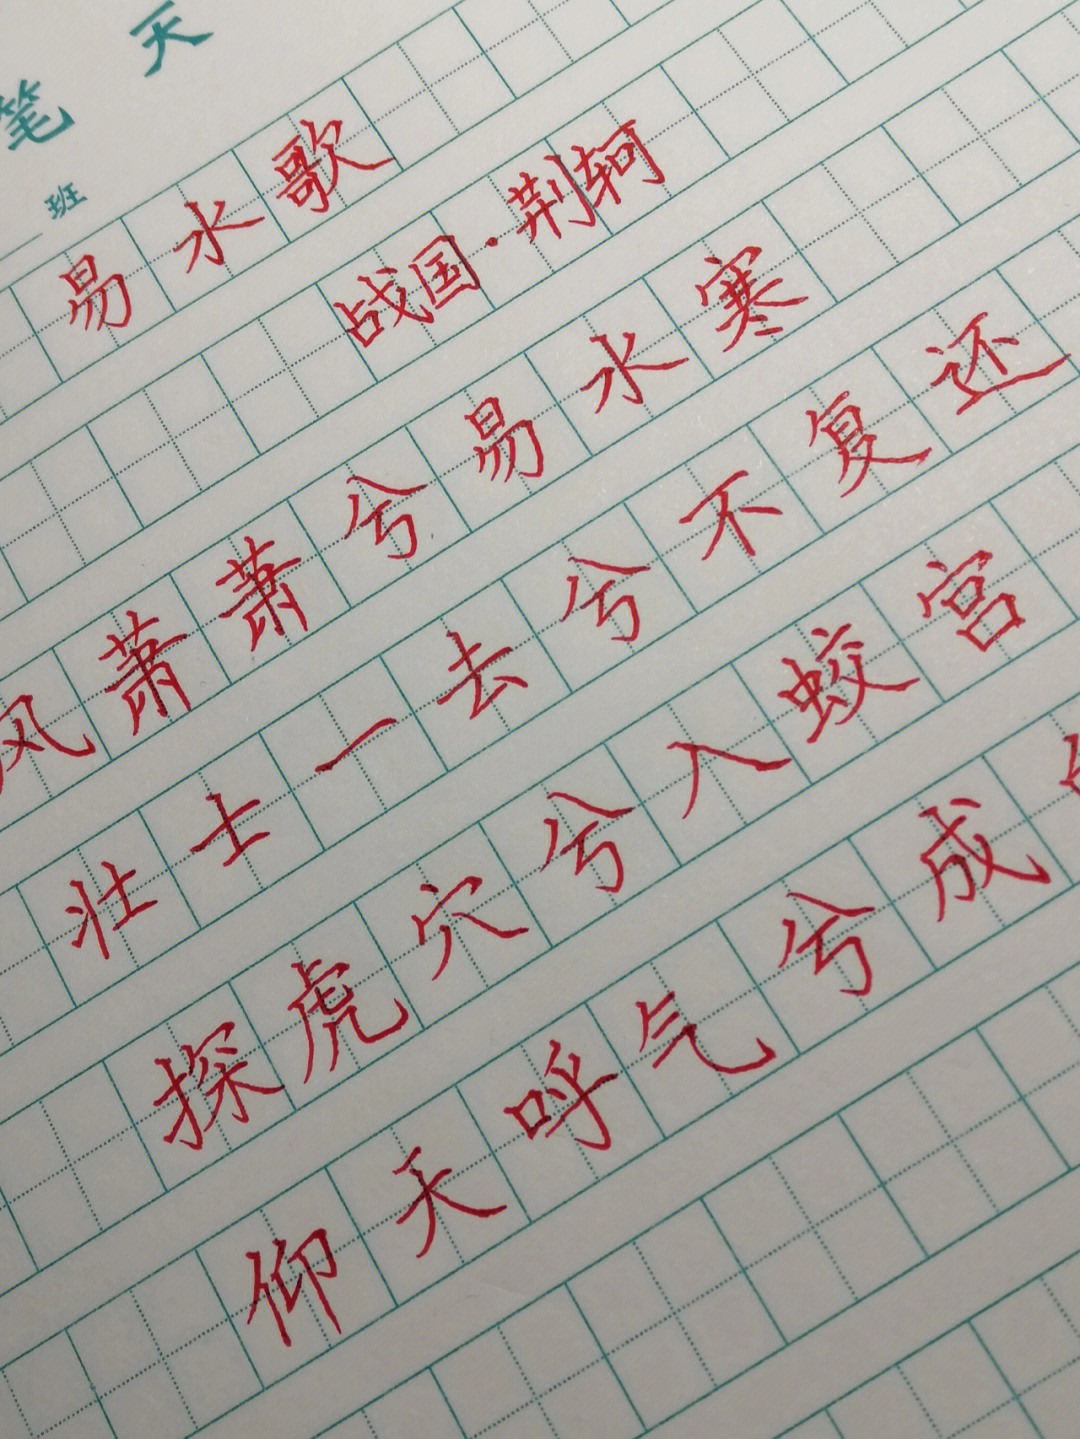 笔 天
班
易水歌
战国·荆轲
风萧萧兮易水寒
壮士一去兮不复还
探虎穴兮入蛟宫
仰天呼气兮成